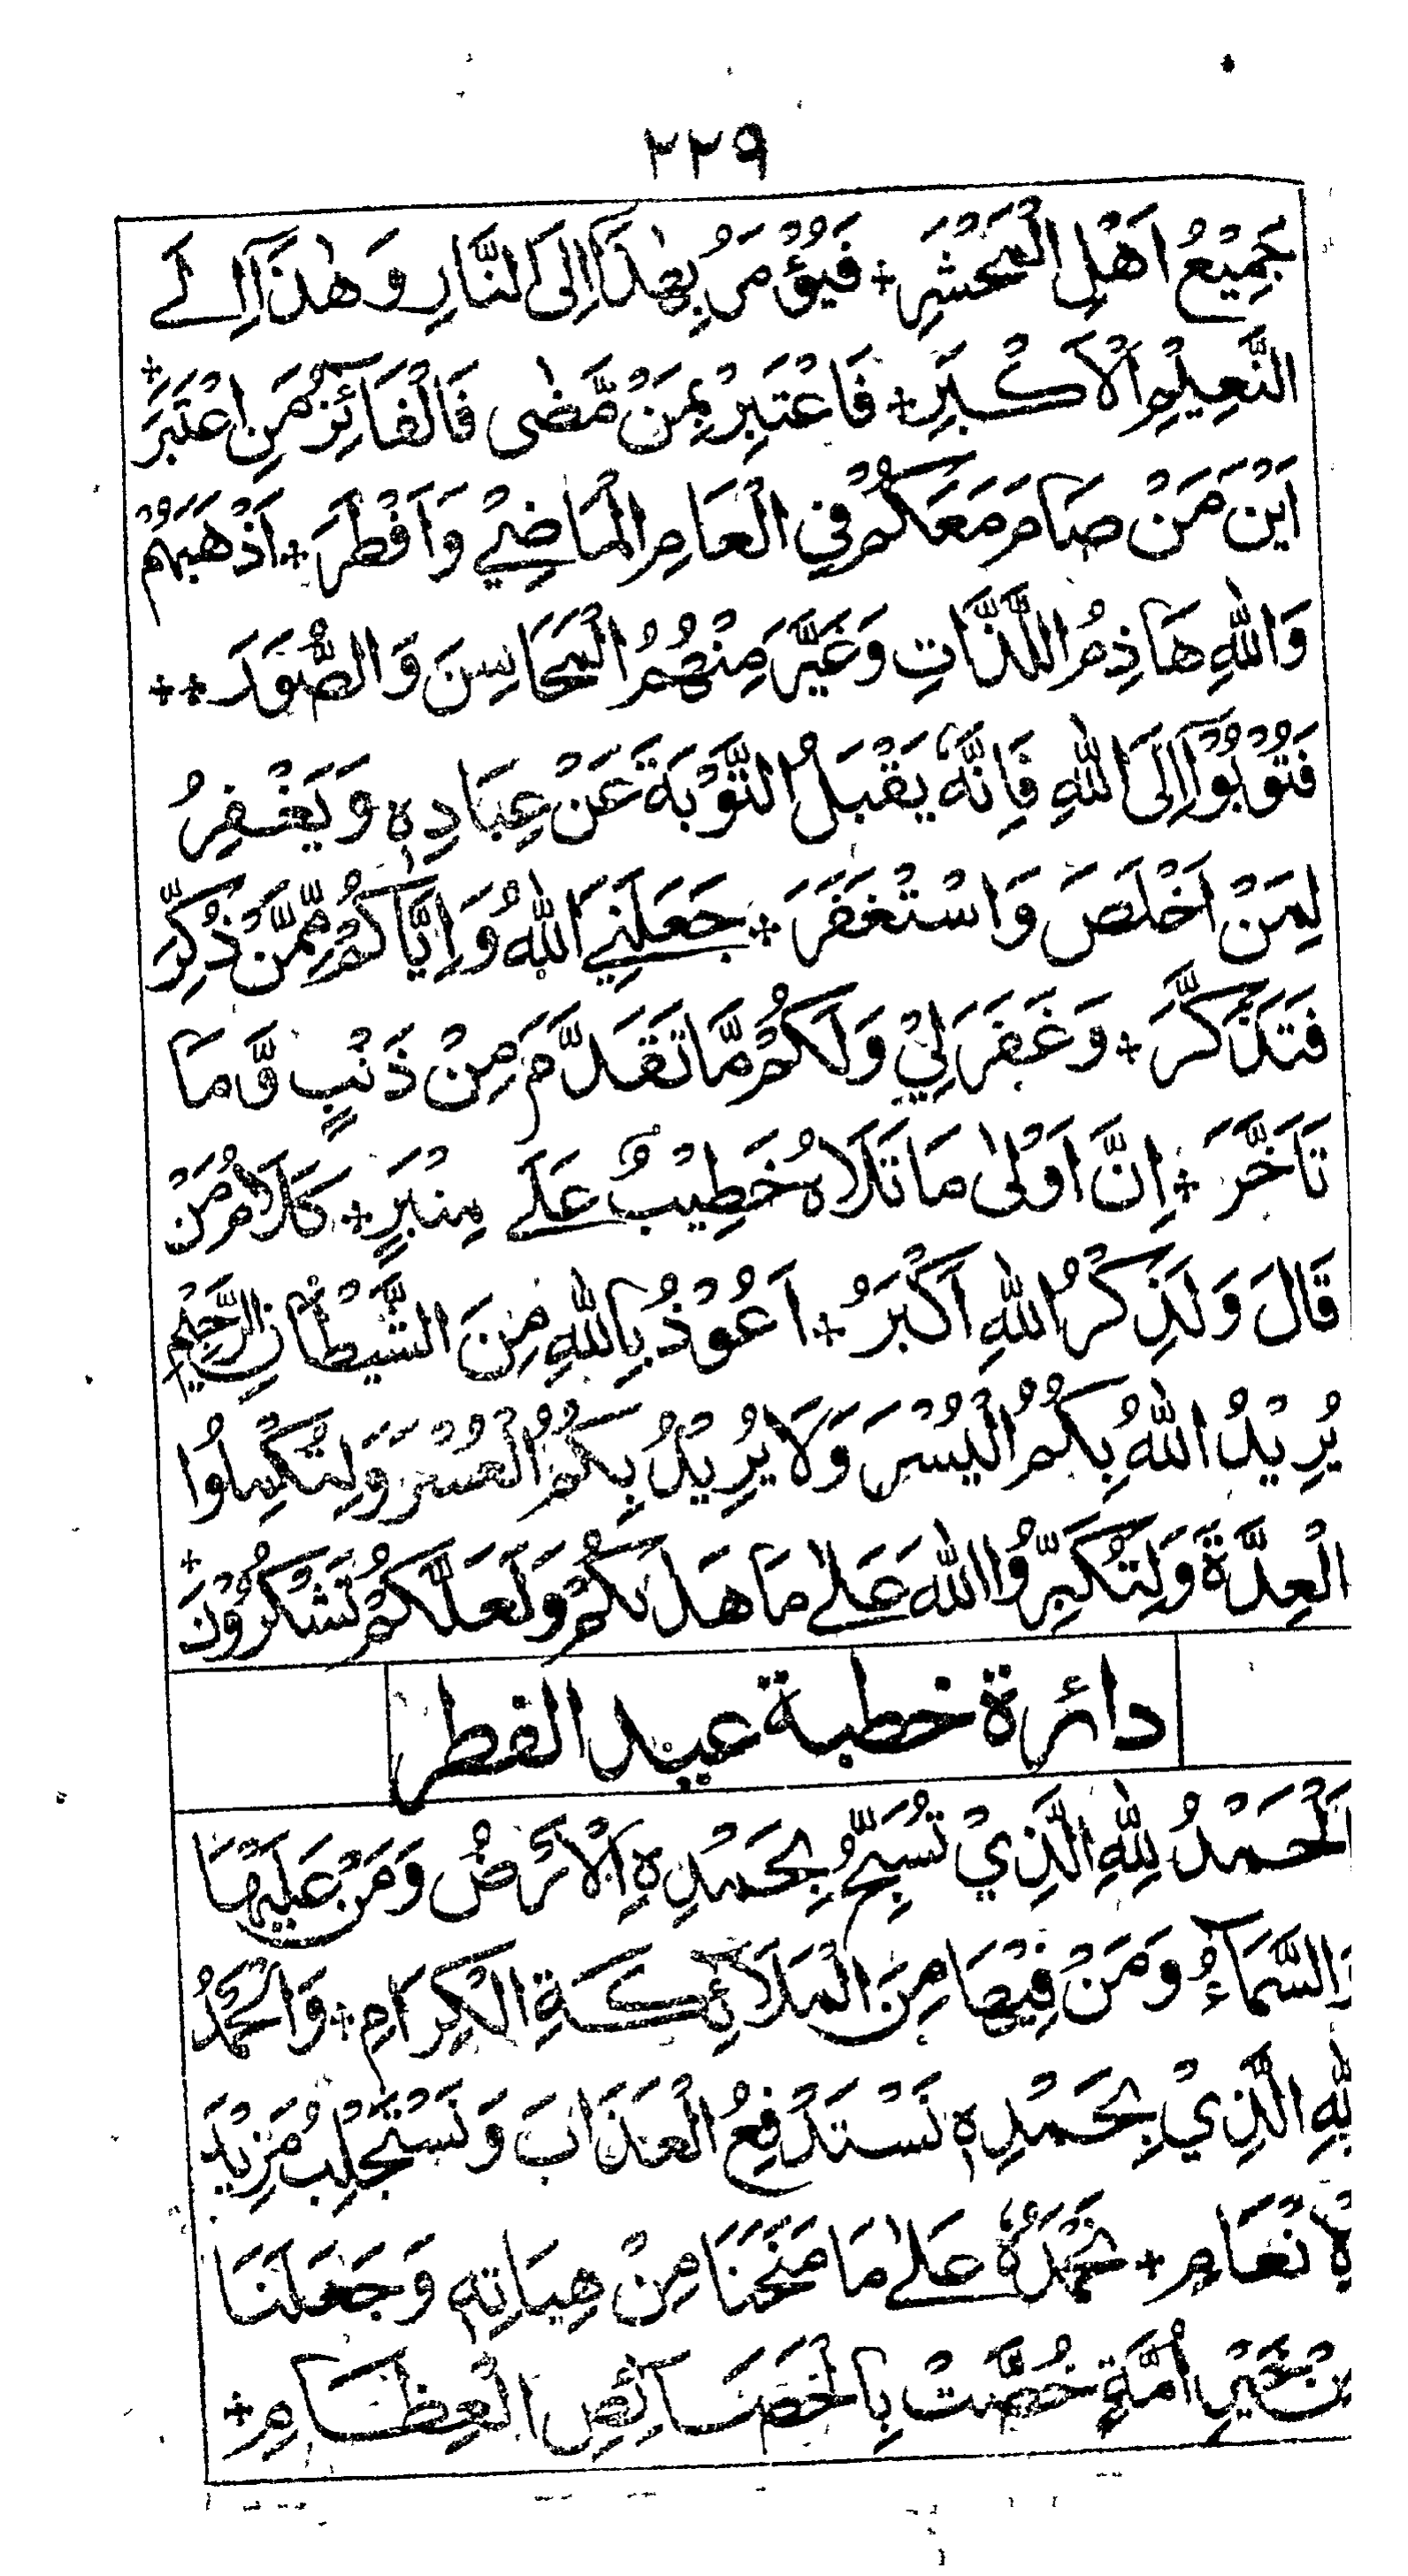 ٢٢٩
جَمِيْعُ اَهْلِ الْمَحْشَرِ + فَيُؤْمَرُ بِهٰذَا اِلَى النَّارِ وَهٰذَا اِلٰے
النَّعِيْمِ الْاَكْبَرِ + فَاعْتَبِرْ بِمَنْ مَّضٰى فَالْفَائِزُ مَنِ اعْتَبَرَ +
اَيْنَ مَنْ صَامَ مَعَكُمْ فِي الْعَامِ الْمَاضِيْ وَاَفْطَرَ + اَذْهَبَهُمْ
وَاللّٰهِ هَاذِمُ اللَّذَّاتِ وَغَيَّرَ مِنْهُمُ الْمَحَاسِنَ وَالصُّوَرَ ++
فَتُوْبُوْا اِلَى اللّٰهِ فَاِنَّهٗ يَقْبَلُ التَّوْبَةَ عَنْ عِبَادِهٖ وَيَغْفِرُ
لِمَنْ اَخْلَصَ وَاسْتَغْفَرَ + جَعَلَنِيَ اللّٰهُ وَاِيَّاكُمْ مِّمَّنْ ذُكِّرَ
فَتَذَكَّرَ + وَغَفَرَ لِيْ وَلَكُمْ مَّا تَقَدَّمَ مِنْ ذَنْبٍ وَّمَا
تَاَخَّرَ + اِنَّ اَوْلٰى مَا تَلَاهُ خَطِيْبٌ عَلٰے مِنْبَرٍ + كَلَامُ مَنْ
قَالَ وَلَذِكْرُ اللّٰهِ اَكْبَرُ + اَعُوْذُ بِاللّٰهِ مِنَ الشَّيْطَانِ الرَّجِيْمِ
يُرِيْدُ اللّٰهُ بِكُمُ الْيُسْرَ وَلَا يُرِيْدُ بِكُمُ الْعُسْرَ وَلِتُكْمِلُوا
الْعِدَّةَ وَلِتُكَبِّرُوا اللّٰهَ عَلٰے مَا هَدٰىكُمْ وَلَعَلَّكُمْ تَشْكُرُوْنَ +
دائرة خطبة عيد الفطر
اَلْحَمْدُ لِلّٰهِ الَّذِيْ تُسَبِّحُ بِحَمْدِهِ الْاَرْضُ وَمَنْ عَلَيْهَا
وَالسَّمَاءُ وَمَنْ فِيْهَا مِنَ الْمَلَائِكَةِ الْكِرَامِ + وَالْحَمْدُ
لِلّٰهِ الَّذِيْ بِحَمْدِهٖ نَسْتَدْفِعُ الْعَذَابَ وَنَسْتَجْلِبُ مَزِيْدَ
الْاِنْعَامِ + نَحْمَدُهٗ عَلٰے مَا مَنَحَنَا مِنْ هِبَاتِهٖ وَجَعَلَنَا
مِنْ خَيْرِ اُمَّةٍ خُصَّتْ بِالْخَصَائِصِ الْعِظَامِ +